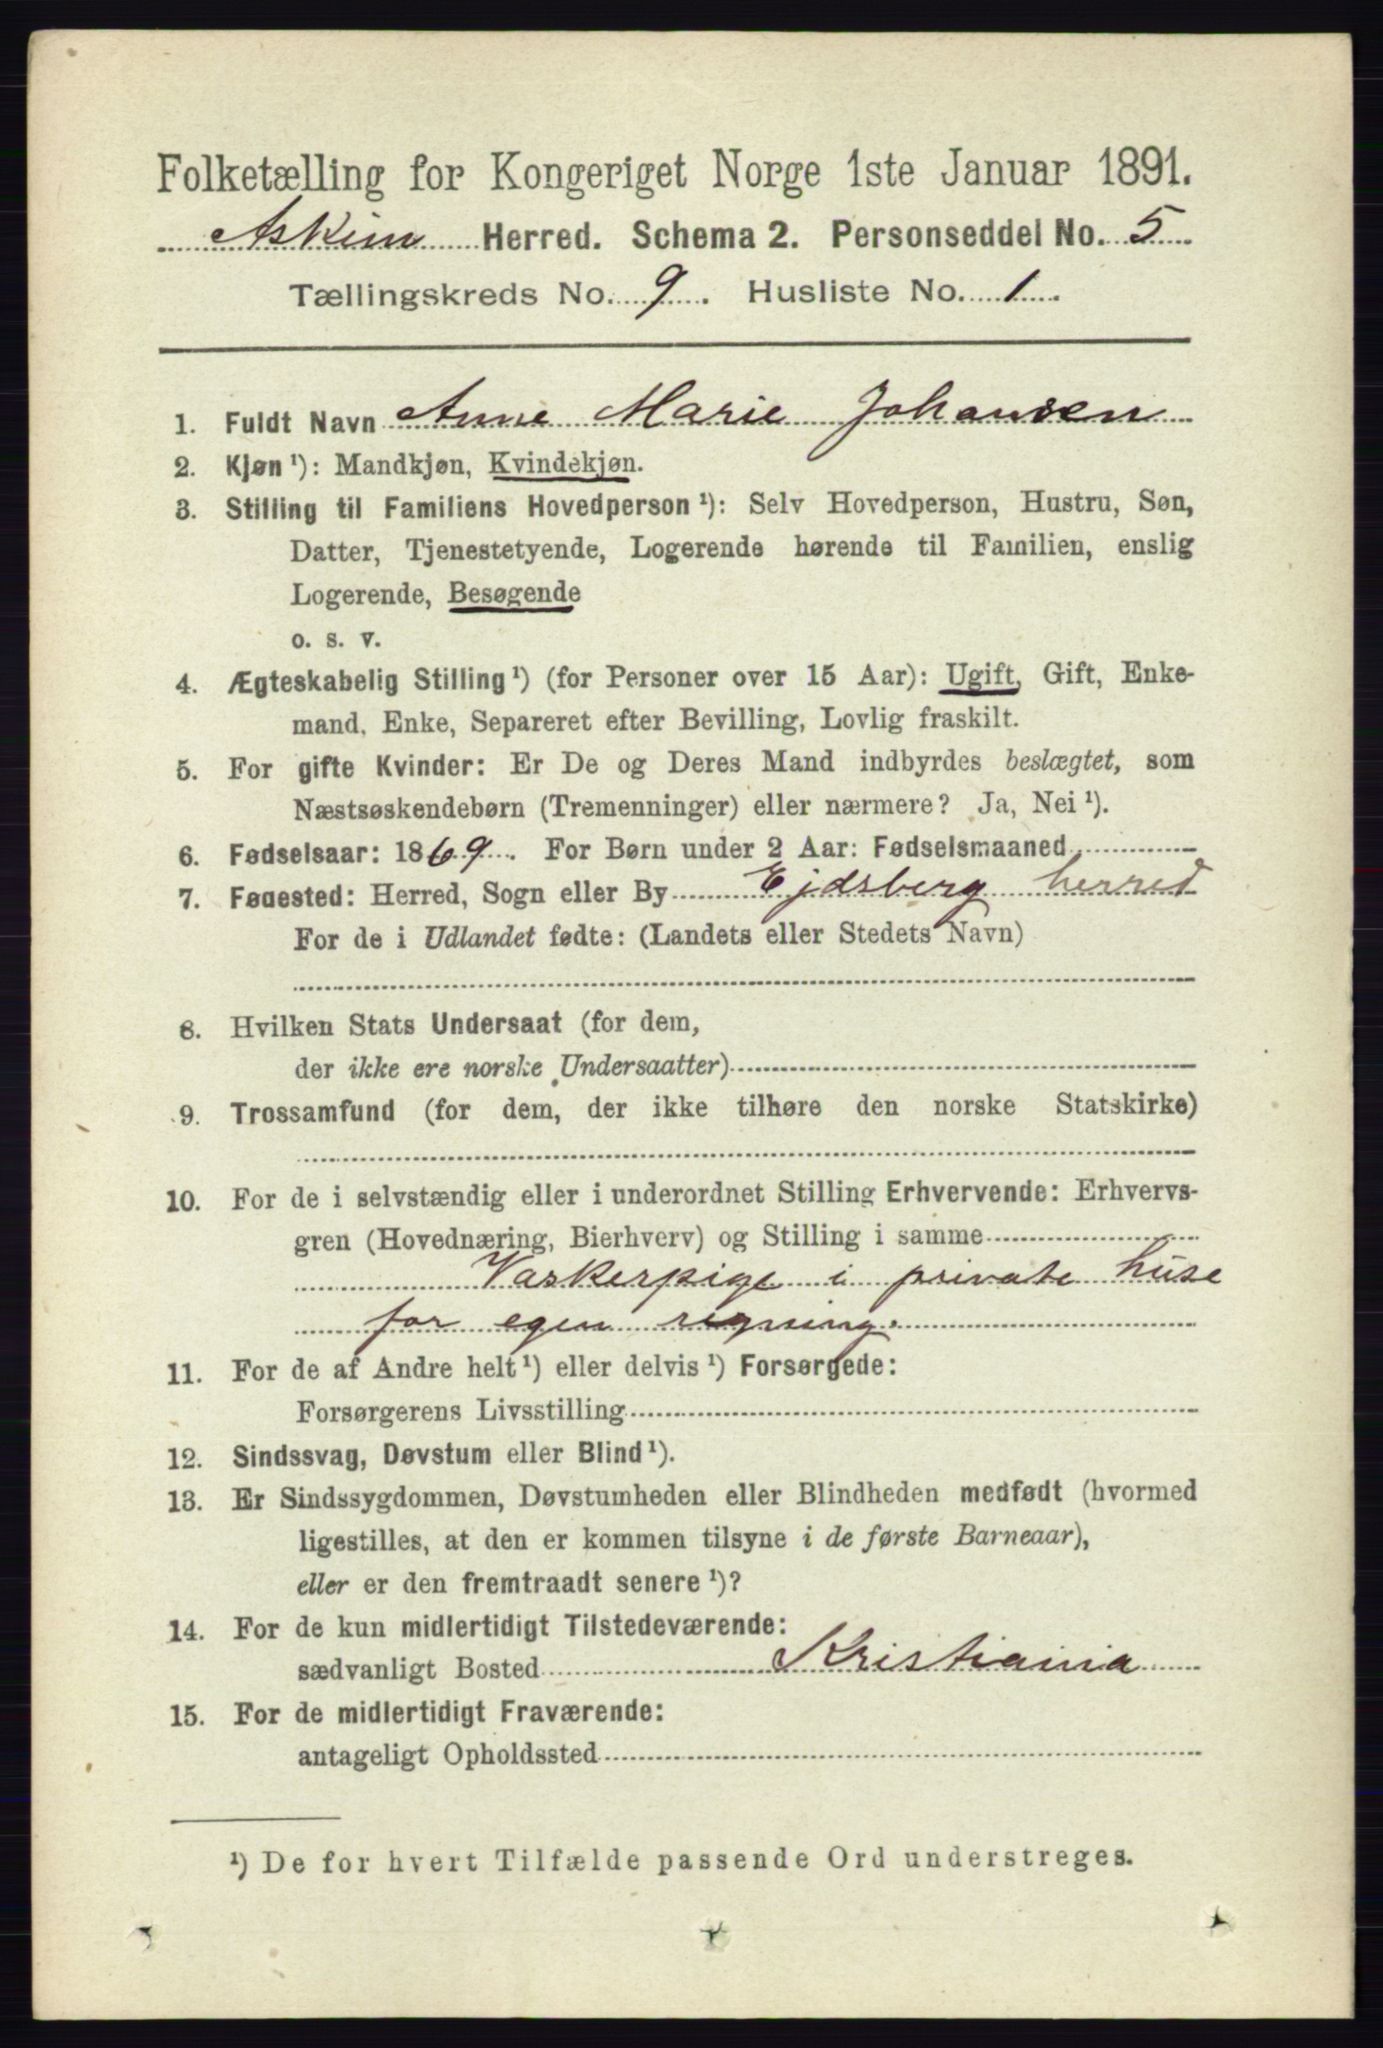 Folketælling for Kongeriget Norge 1ste Januar 1891.
Askim Herred. Schema 2. Personseddel No. 5
Tællingskreds No. 9. Husliste No. 1.
1. Fuldt Navn Anne Marie Johansen
2. Kjøn ¹): Mandkjøn, Kvindekjøn.
3. Stilling til Familiens Hovedperson ¹): Selv Hovedperson, Hustru, Søn,
Datter, Tjenestetyende, Logerende hørende til Familien, enslig
Logerende, Besøgende
o. s. v.
4. Ægteskabelig Stilling ¹) (for Personer over 15 Aar): Ugift, Gift, Enke-
mand, Enke, Separeret efter Bevilling, Lovlig fraskilt.
5. For gifte Kvinder: Er De og Deres Mand indbyrdes beslægtet, som
Næstsøskendebørn (Tremenninger) eller nærmere? Ja, Nei ¹).
6. Fødselsaar: 1869. For Børn under 2 Aar: Fødselsmaaned
7. Fødested: Herred, Sogn eller By Ejdsberg herred
For de i Udlandet fødte: (Landets eller Stedets Navn)
8. Hvilken Stats Undersaat (for dem,
der ikke ere norske Undersaatter)
9. Trossamfund (for dem, der ikke tilhøre den norske Statskirke)
10. For de i selvstændig eller i underordnet Stilling Erhvervende: Erhvervs-
gren (Hovednæring, Bierhverv) og Stilling i samme
Vaskerpige i private huse
for egen regning.
11. For de af Andre helt ¹) eller delvis ¹) Forsørgede:
Forsørgerens Livsstilling
12. Sindssvag, Døvstum eller Blind ¹).
13. Er Sindssygdommen, Døvstumheden eller Blindheden medfødt (hvormed
ligestilles, at den er kommen tilsyne i de første Barneaar),
eller er den fremtraadt senere ¹)?
14. For de kun midlertidigt Tilstedeværende:
sædvanligt Bosted Kristiania
15. For de midlertidigt Fraværende:
antageligt Opholdssted
¹) De for hvert Tilfælde passende Ord understreges.